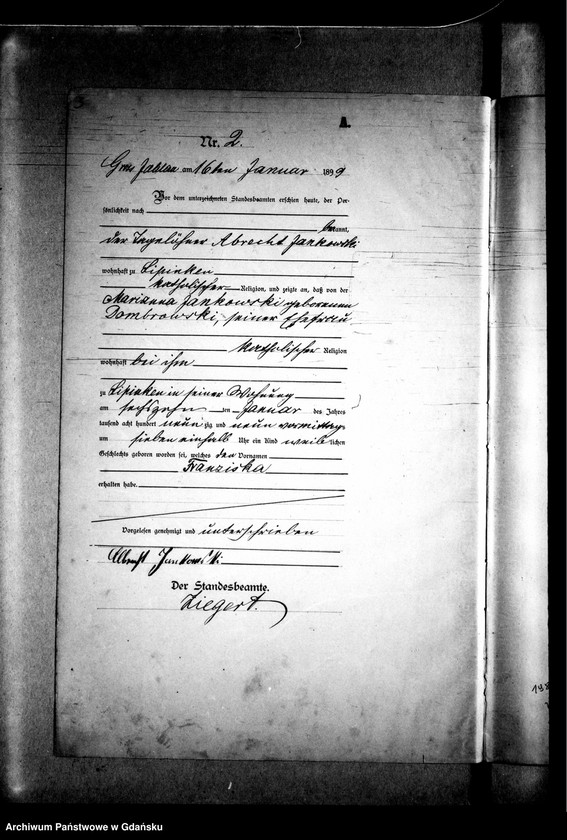 A.
Nr. 2.
Gross Jablau am 16ten Januar 1899
Vor dem unterzeichneten Standesbeamten erschien heute, der Per-
sönlichkeit nach
bekannt,
der Tagelöhner Albrecht Jankowski
wohnhaft zu Lipinken
katholischer Religion, und zeigte an, daß von der
Marianna Jankowski geborenen
Dombrowski, seiner Ehefrau
katholischer Religion
wohnhaft bei ihm
zu Lipinken in seiner Wohnung
am sechszehn ten Januar des Jahres
tausend acht hundert neun zig und neun vormittags
um sieben einhalb Uhr ein Kind weib lichen
Geschlechts geboren worden sei, welches den Vornamen
Franziska
erhalten habe.
Vorgelesen genehmigt und unterschrieben
Albrecht Jankowski
Der Standesbeamte.
Ziegert.
Archiwum Państwowe w Gdańsku